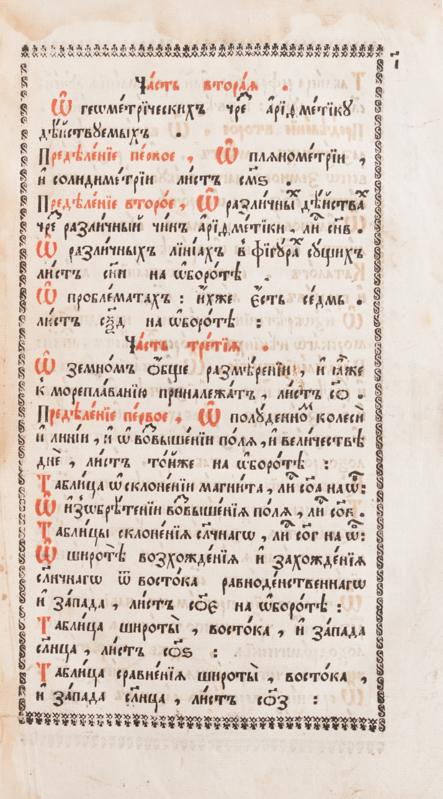 Ча́сть вторая .
Ѡ҃ геѡме́трїческихъ чре́ѕ арїдме́тїку
дѣ́йствуемыхъ .
Предѣле́нїе пе́рвое , Ѿ пляноме́трїи ,
и҆ солидиме́трїи ли́стъ см҃ѕ
Предѣле́нїе второ́е , Ѿ разли́чны дѣ́йства
чре́ разли́чный чи́нъ арїдме́тїки , ли́ сн҃в .
Ѿ разли́чныхъ ли́нїахъ в фїгу́ра су́щихъ
ли́стъ сн҃и на ѡ҆боро́тѣ .
Ѿ пробле́матахъ : и҆́хже є҆́сть се́дмь .
ли́стъ сѯ҃д на ѡ҆боро́тѣ :
Ча́сть тре́тїя .
Ѿ земно́мъ ѻ҆́бще размѣ́ренїи , и҆ ꙗ҆́же
к мореплава́нїю принадлежа́тъ , ли́стъ со҃ .
Предѣле́нїе пе́рвое , Ѿ полу́денно колесѝ
и҆ ли́нїи , и҆ ѡ҆ вовыше́нїи по́ля , и҆ вели́чествѣ
днѐ , ли́стъ то́йже на ѡ҆боро́тѣ :
Табли́ца ѡ҆склоне́нїи магни́та , ли́ со҃а на ѡ҆́ :
Ѿ и҆з̾ѡбрѣ́тенїи вовыше́нїя по́ля , ли́ со҃в .
Табли́цы склоне́нїя сл҃чнагѡ , ли́ со҃г на ѡ҆́ :
Ѿ широтѣ̀ восхожде́нїя и҆ захожде́нїя
сл҃ничнагѡ ѿ восто́ка равноде́нственнагѡ
и҆ за́пада , ли́стъ со҃є на ѡ҆боро́тѣ :
Табли́ца широты̀ , восто́ка , и҆ за́пада
сл҃нца , ли́стъ со҃ѕ :
Табли́ца сравне́нїя широты̀ , восто́ка ,
и҆ за́пада сл҃нца , ли́стъ со҃з :